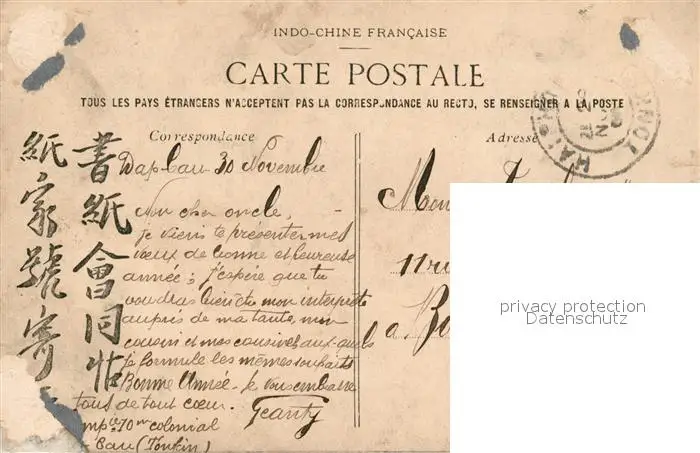 INDO-CHINE FRANÇAISE
CARTE POSTALE
TOUS LES PAYS ÉTRANGERS N'ACCEPTENT PAS LA CORRESPONDANCE AU RECTO, SE RENSEIGNER A LA POSTE
Correspondance
Dap-Cau 30 Novembre
Mon cher oncle,
je viens te présenter mes
vœux de bonne et heureuse
année; j'espère que tu
voudras bien être mon interprète
auprès de ma tante, mon
cousin et mes cousines aux-quels
je formule les mêmes souhaits
Bonne Année - je vous embrasse
tous de tout cœur.
colonial
Cau (Tonkin)
書紙會同帖
紙家號寄
Adresse
HAI
NO
Mon
11 ru
a Bo
privacy protection
Datenschutz